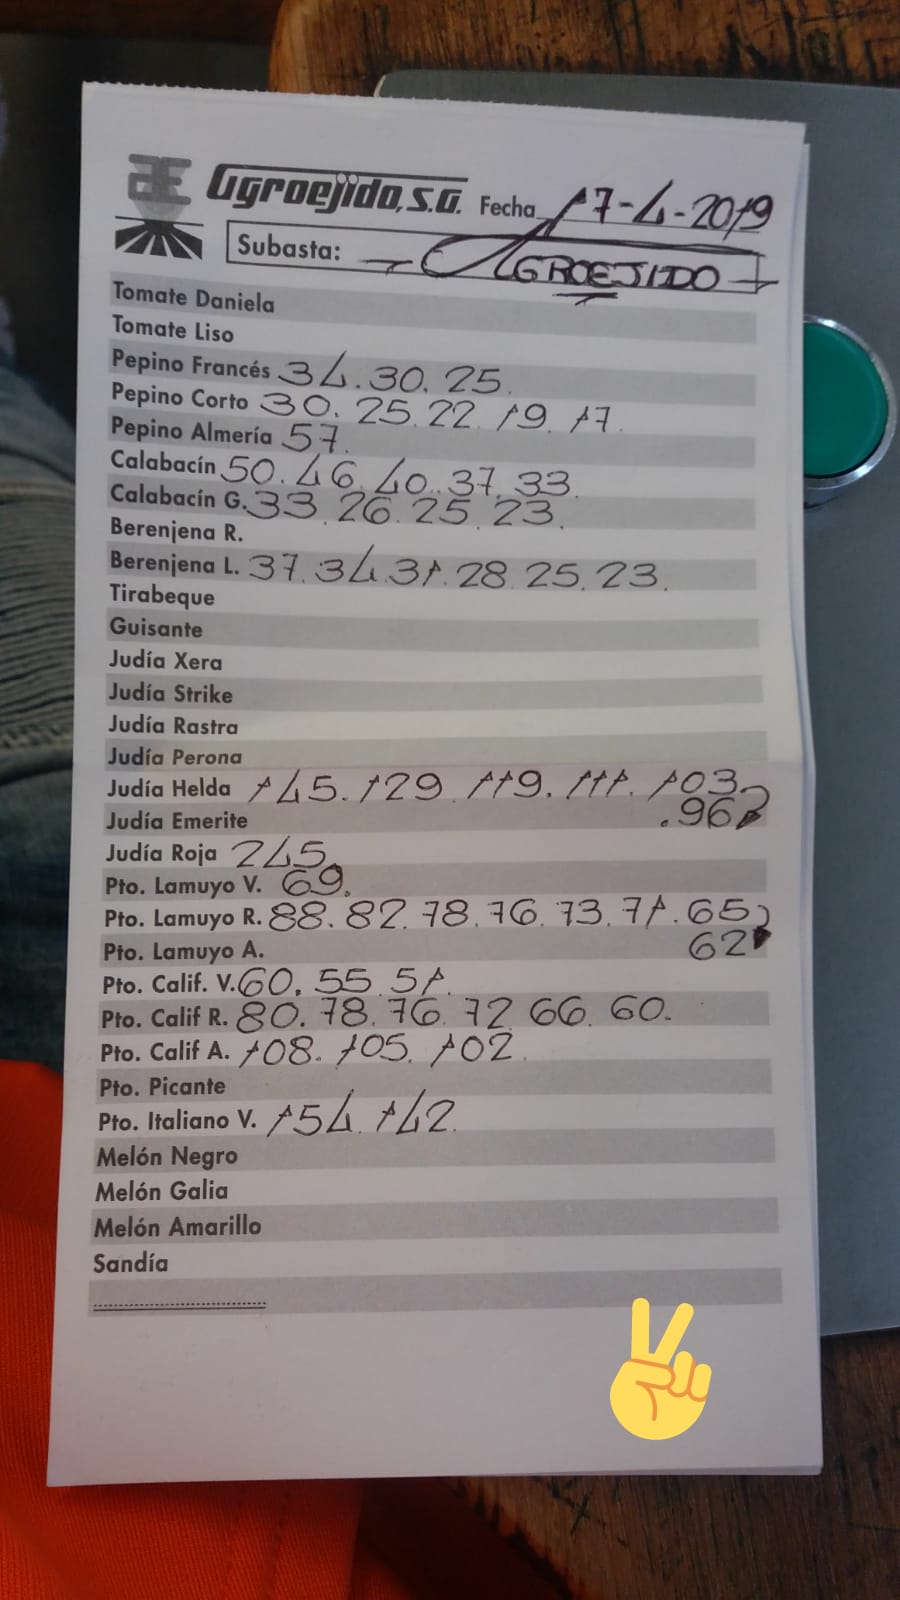 Agroejido, S.A. Fecha 17-4-2019
Subasta: AGROEJIDO
Tomate Daniela
Tomate Liso
Pepino Francés 34. 30. 25.
Pepino Corto 30. 25. 22. 19. 17.
Pepino Almería 57.
Calabacín 50. 46. 40. 37. 33.
Calabacín G. 33. 26. 25. 23.
Berenjena R.
Berenjena L. 37. 34. 31. 28. 25. 23.
Tirabeque
Guisante
Judía Xera
Judía Strike
Judía Rastra
Judía Perona
Judía Helda 145. 129. 119. 111. 103.
Judía Emerite .96
Judía Roja 245.
Pto. Lamuyo V. 69.
Pto. Lamuyo R. 88. 82. 78. 76. 73. 71. 65
Pto. Lamuyo A. 62
Pto. Calif. V. 60. 55. 51.
Pto. Calif R. 80. 78. 76. 72. 66. 60.
Pto. Calif A. 108. 105. 102.
Pto. Picante
Pto. Italiano V. 154. 142.
Melón Negro
Melón Galia
Melón Amarillo
Sandía